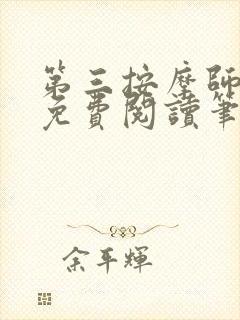 第三按摩師
免費閱讀筆
余平輝